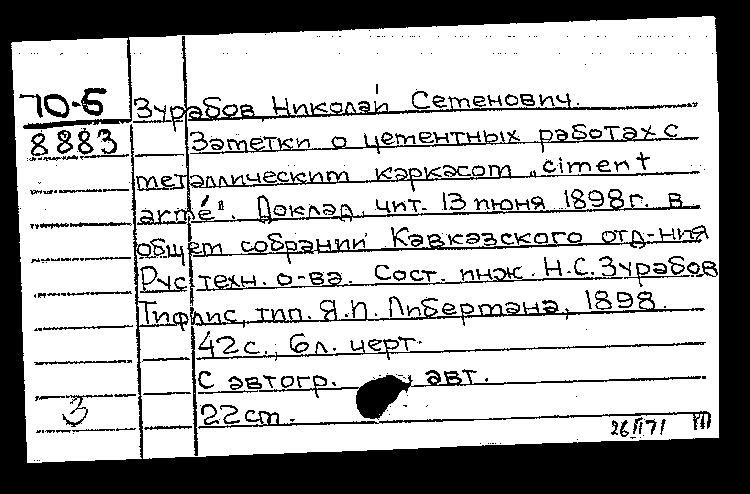 70-5
8883
Зурабов, Николай Семенович.
Заметки о цементных работах с
металлическим каркасом „ciment
armé". Доклад, чит. 13 июня 1898г. в
общем собрании Кавказского отд-ния
Рус. техн. о-ва. Сост. инж. Н.С. Зурабов
Тифлис, тип. Я.И. Либермана, 1898.
42 с., 6 л. черт.
С автогр. авт.
3
22 см.
26/II 71